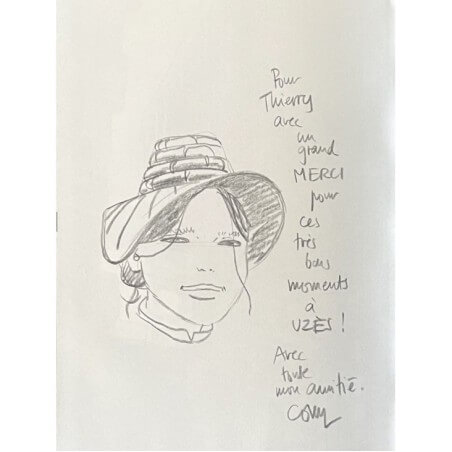 Pour
Thierry
avec
un
grand
MERCI
pour
ces
très
bons
moments
à
UZÈS !
Avec
toute
mon amitié.